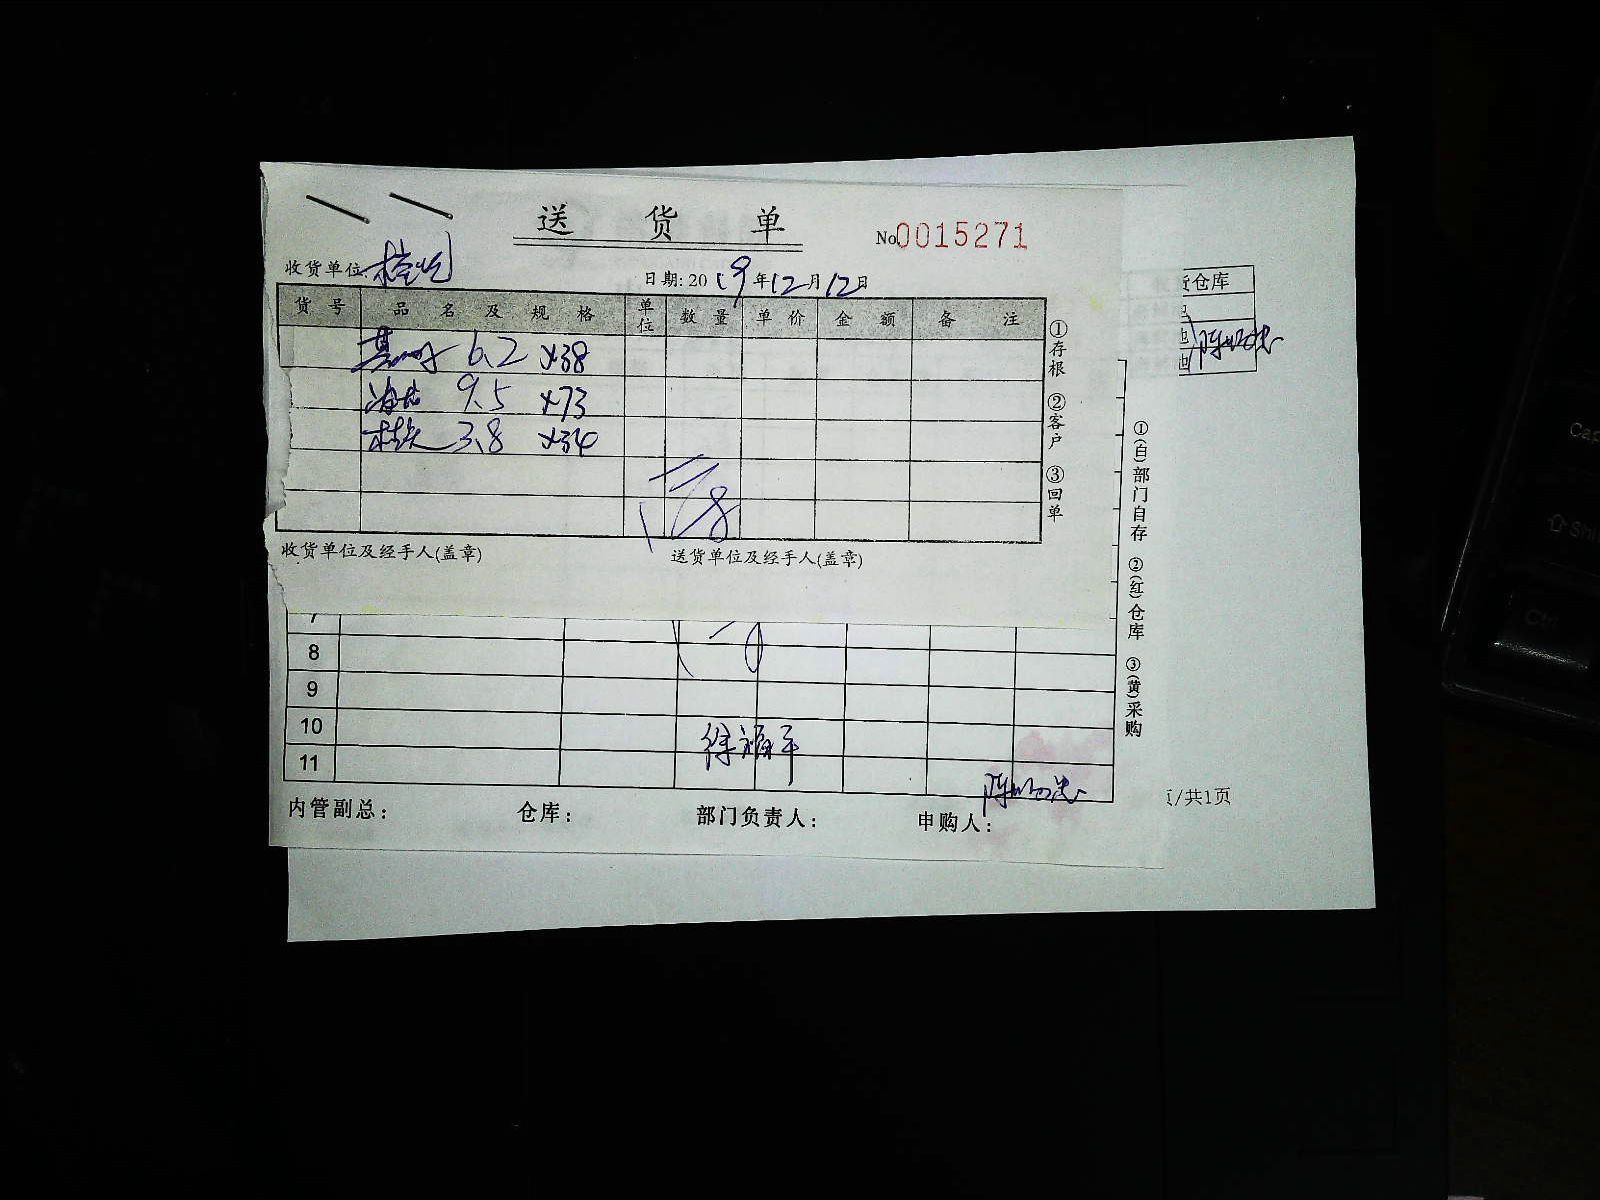 送货单
No.0015271
收货单位:
日期: 2019年12月12日
货号 品名及规格 单位 数量 单价 金额 备注
6.2 ×38
9.5 ×73
3.8 ×34
收货单位及经手人(盖章) 送货单位及经手人(盖章)
①存根 ②客户 ③回单
仓库
7
8
9
10
11
徐福平
内管副总: 仓库: 部门负责人: 申购人:
①(白)部门自存 ②(红)仓库 ③(黄)采购
页/共1页
Ctrl